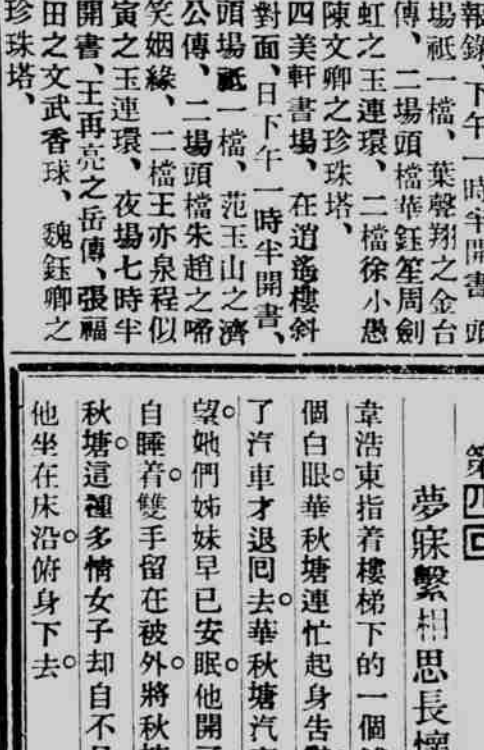 報錄、下午一時半開書、頭
場祗一檔、葉聲翔之金台
傳、二場頭檔華鈺笙周劍
虹之玉連環、二檔徐小愚
陳文卿之珍珠塔、
四美軒書場、在逍遙樓斜
對面、日下午一時半開書、
頭場祗一檔、范玉山之濟
公傳、二場頭檔朱趙之啼
笑姻緣、二檔王亦泉程似
寅之玉連環、夜場七時半
開書、王再亮之岳傳、張福
田之文武香球、魏鈺卿之
珍珠塔、
第四回
夢寐繫相思長懷
韋浩東指着樓梯下的一個
個白眼。華秋塘連忙起身告
了汽車才退回去。華秋塘汽
望。她們姊妹早已安眠。他開
自睡着。雙手留在被外。將秋
秋塘。這種多情女子却自不
他坐在床沿。俯身下去。